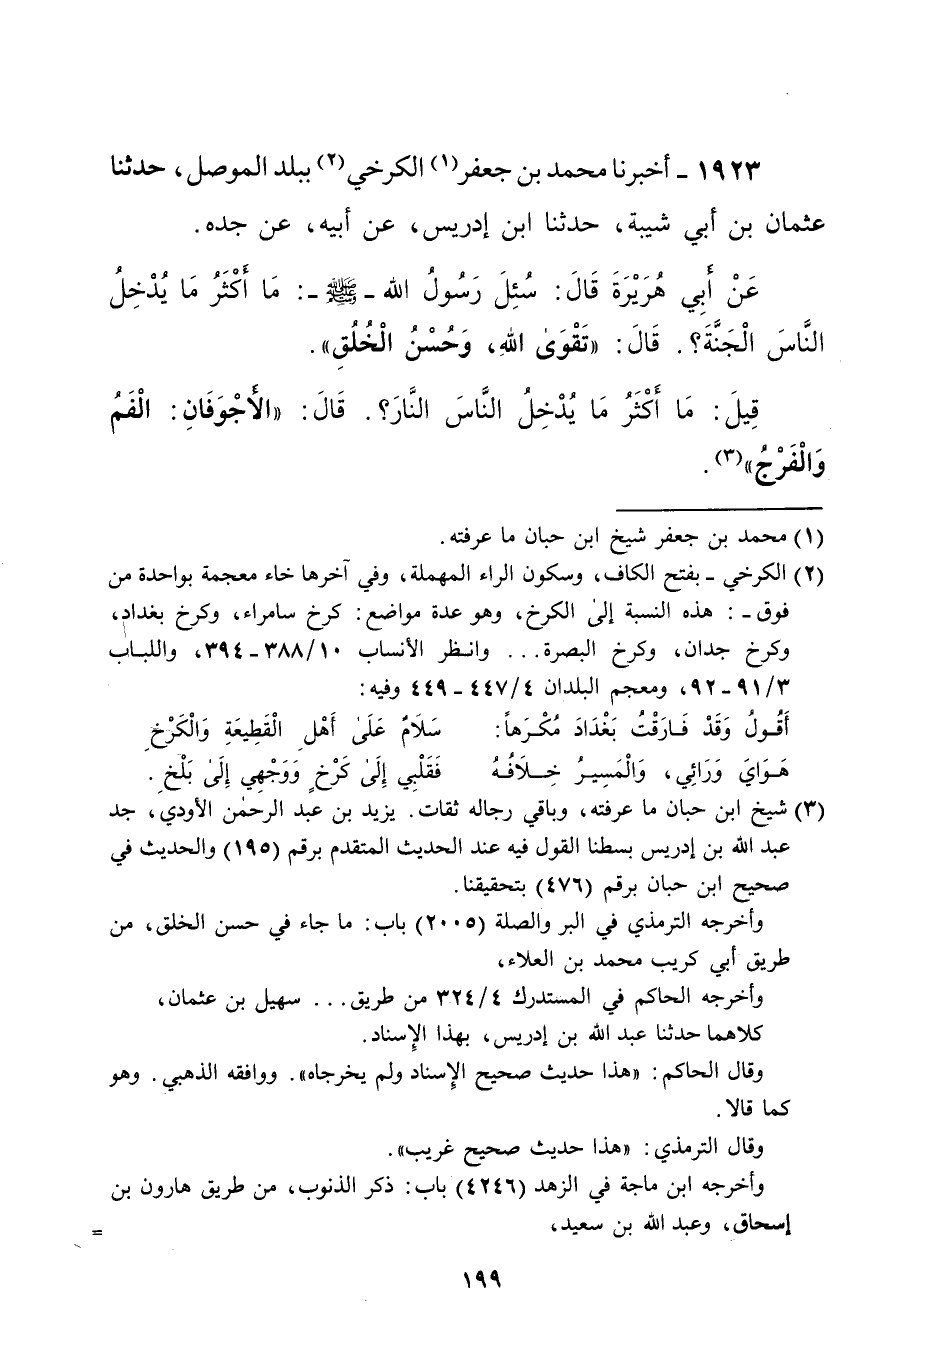 ١٩٢٣ ـ أخبرنا محمد بن جعفر(١) الكرخي(٢) ببلد الموصل، حدثنا
عثمان بن أبي شيبة، حدثنا ابن إدريس، عن أبيه، عن جده.
عَنْ أَبِي هُرَيْرَةَ قَالَ: سُئِلَ رَسُولُ الله ـ ﷺ ـ: مَا أَكْثَرُ مَا يُدْخِلُ
النَّاسَ الْجَنَّةَ؟. قَالَ: «تَقْوَىٰ اللهِ، وَحُسْنُ الْخُلُقِ».
قِيلَ: مَا أَكْثَرُ مَا يُدْخِلُ النَّاسَ النَّارَ؟. قَالَ: «الأَجْوَفَانِ: الْفَمُ
وَالْفَرْجُ»(٣).
(١) محمد بن جعفر شيخ ابن حبان ما عرفته.
(٢) الكرخي ـ بفتح الكاف، وسكون الراء المهملة، وفي آخرها خاء معجمة بواحدة من
فوق ـ: هذه النسبة إلىٰ الكرخ، وهو عدة مواضع: كرخ سامراء، وكرخ بغداد،
وكرخ جدان، وكرخ البصرة... وانظر الأنساب ١٠/ ٣٨٨ ـ ٣٩٤، واللباب
٣/ ٩١ ـ ٩٢، ومعجم البلدان ٤/ ٤٤٧ ـ ٤٤٩ وفيه:
أَقُولُ وَقَدْ فَارَقْتُ بَغْدَادَ مُكْرَهاً: سَلَامٌ عَلَىٰ أَهْلِ الْقَطِيعَةِ وَالْكَرْخِ
هَوَايَ وَرَائِي، وَالْمَسِيرُ خِلَافُهُ فَقَلْبِي إِلَىٰ كَرْخٍ وَوَجْهِي إِلَى بَلْخِ.
(٣) شيخ ابن حبان ما عرفته، وباقي رجاله ثقات. يزيد بن عبد الرحمٰن الأودي، جد
عبد الله بن إدريس بسطنا القول فيه عند الحديث المتقدم برقم (١٩٥) والحديث في
صحيح ابن حبان برقم (٤٧٦) بتحقيقنا.
وأخرجه الترمذي في البر والصلة (٢٠٠٥) باب: ما جاء في حسن الخلق، من
طريق أبي كريب محمد بن العلاء،
وأخرجه الحاكم في المستدرك ٤/ ٣٢٤ من طريق... سهيل بن عثمان،
كلاهما حدثنا عبد الله بن إدريس، بهذا الإسناد.
وقال الحاكم: «هذا حديث صحيح الإسناد ولم يخرجاه». ووافقه الذهبي. وهو
كما قالا.
وقال الترمذي: «هذا حديث صحيح غريب».
وأخرجه ابن ماجة في الزهد (٤٢٤٦) باب: ذكر الذنوب، من طريق هارون بن
إسحاق، وعبد الله بن سعيد، =
١٩٩